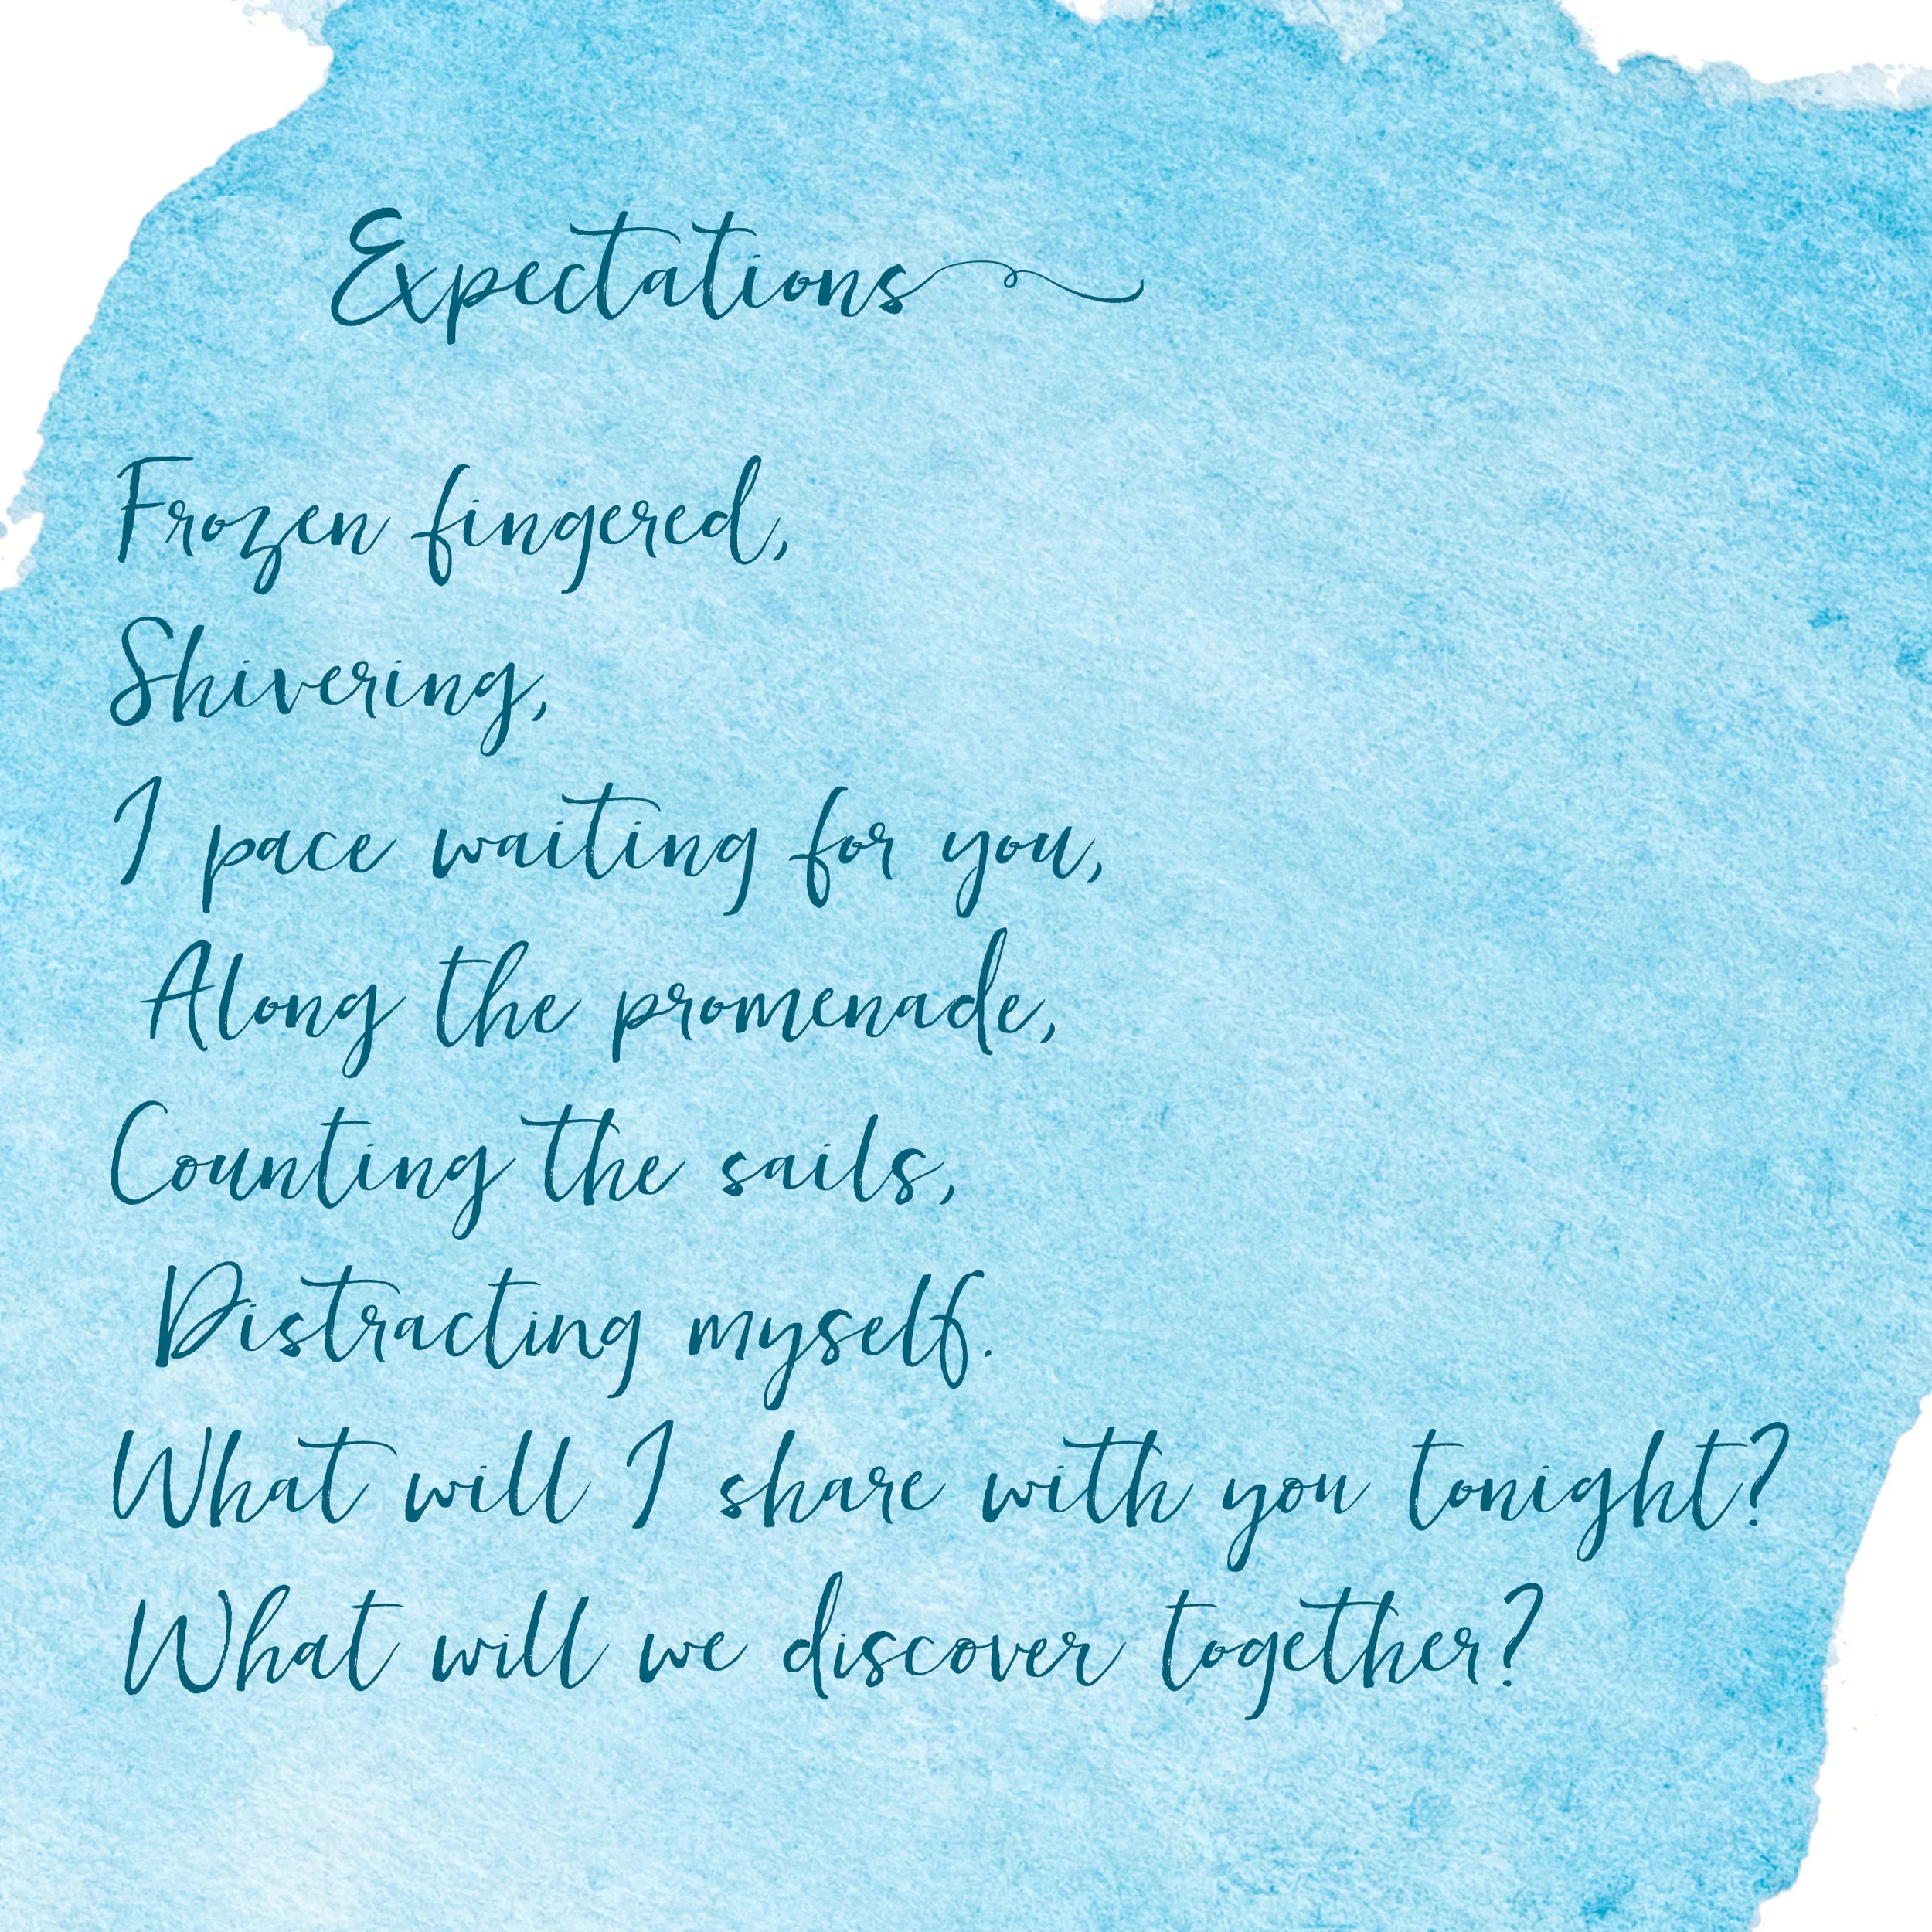 Expectations
Frozen fingered,
Shivering,
I pace waiting for you,
Along the promenade,
Counting the sails,
Distracting myself.
What will I share with you tonight?
What will we discover together?